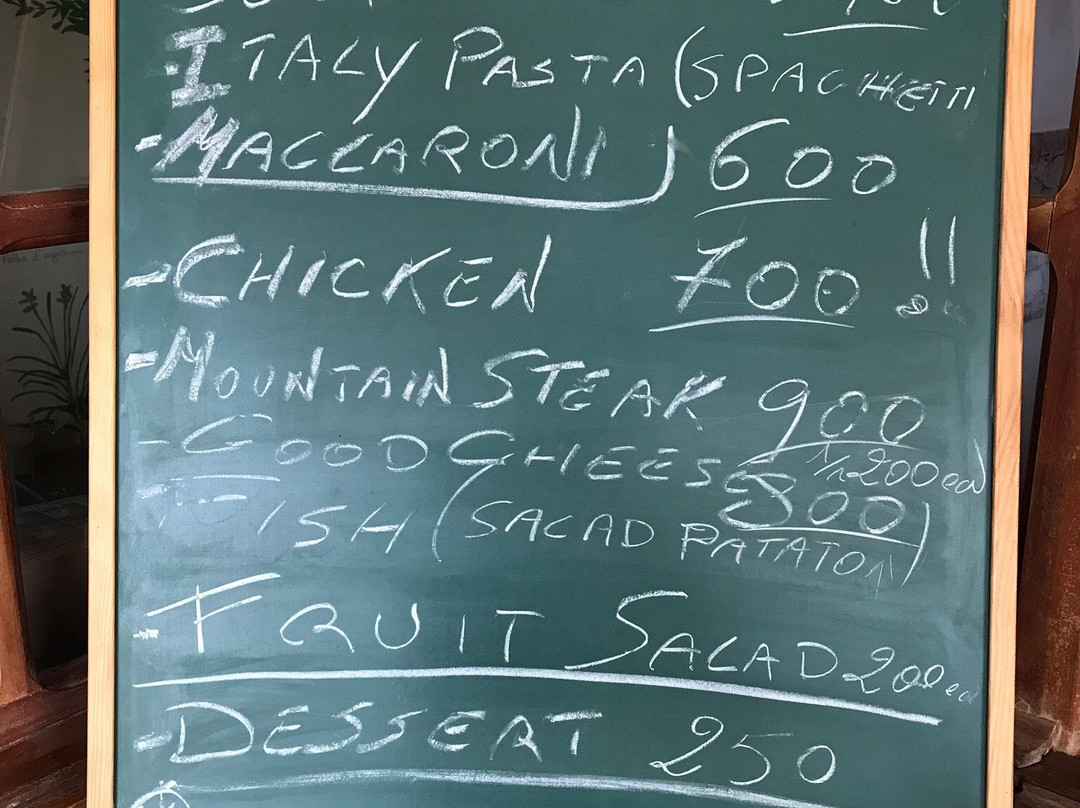 -ITALY PASTA (SPAGHETTI
-MACCARONI) 600
-CHICKEN 700 !!
-MOUNTAIN STEAK 900
-GOOD CHEESE 200
FISH (SALAD PATATON) 800
-FRUIT SALAD 200
-DESSERT 250